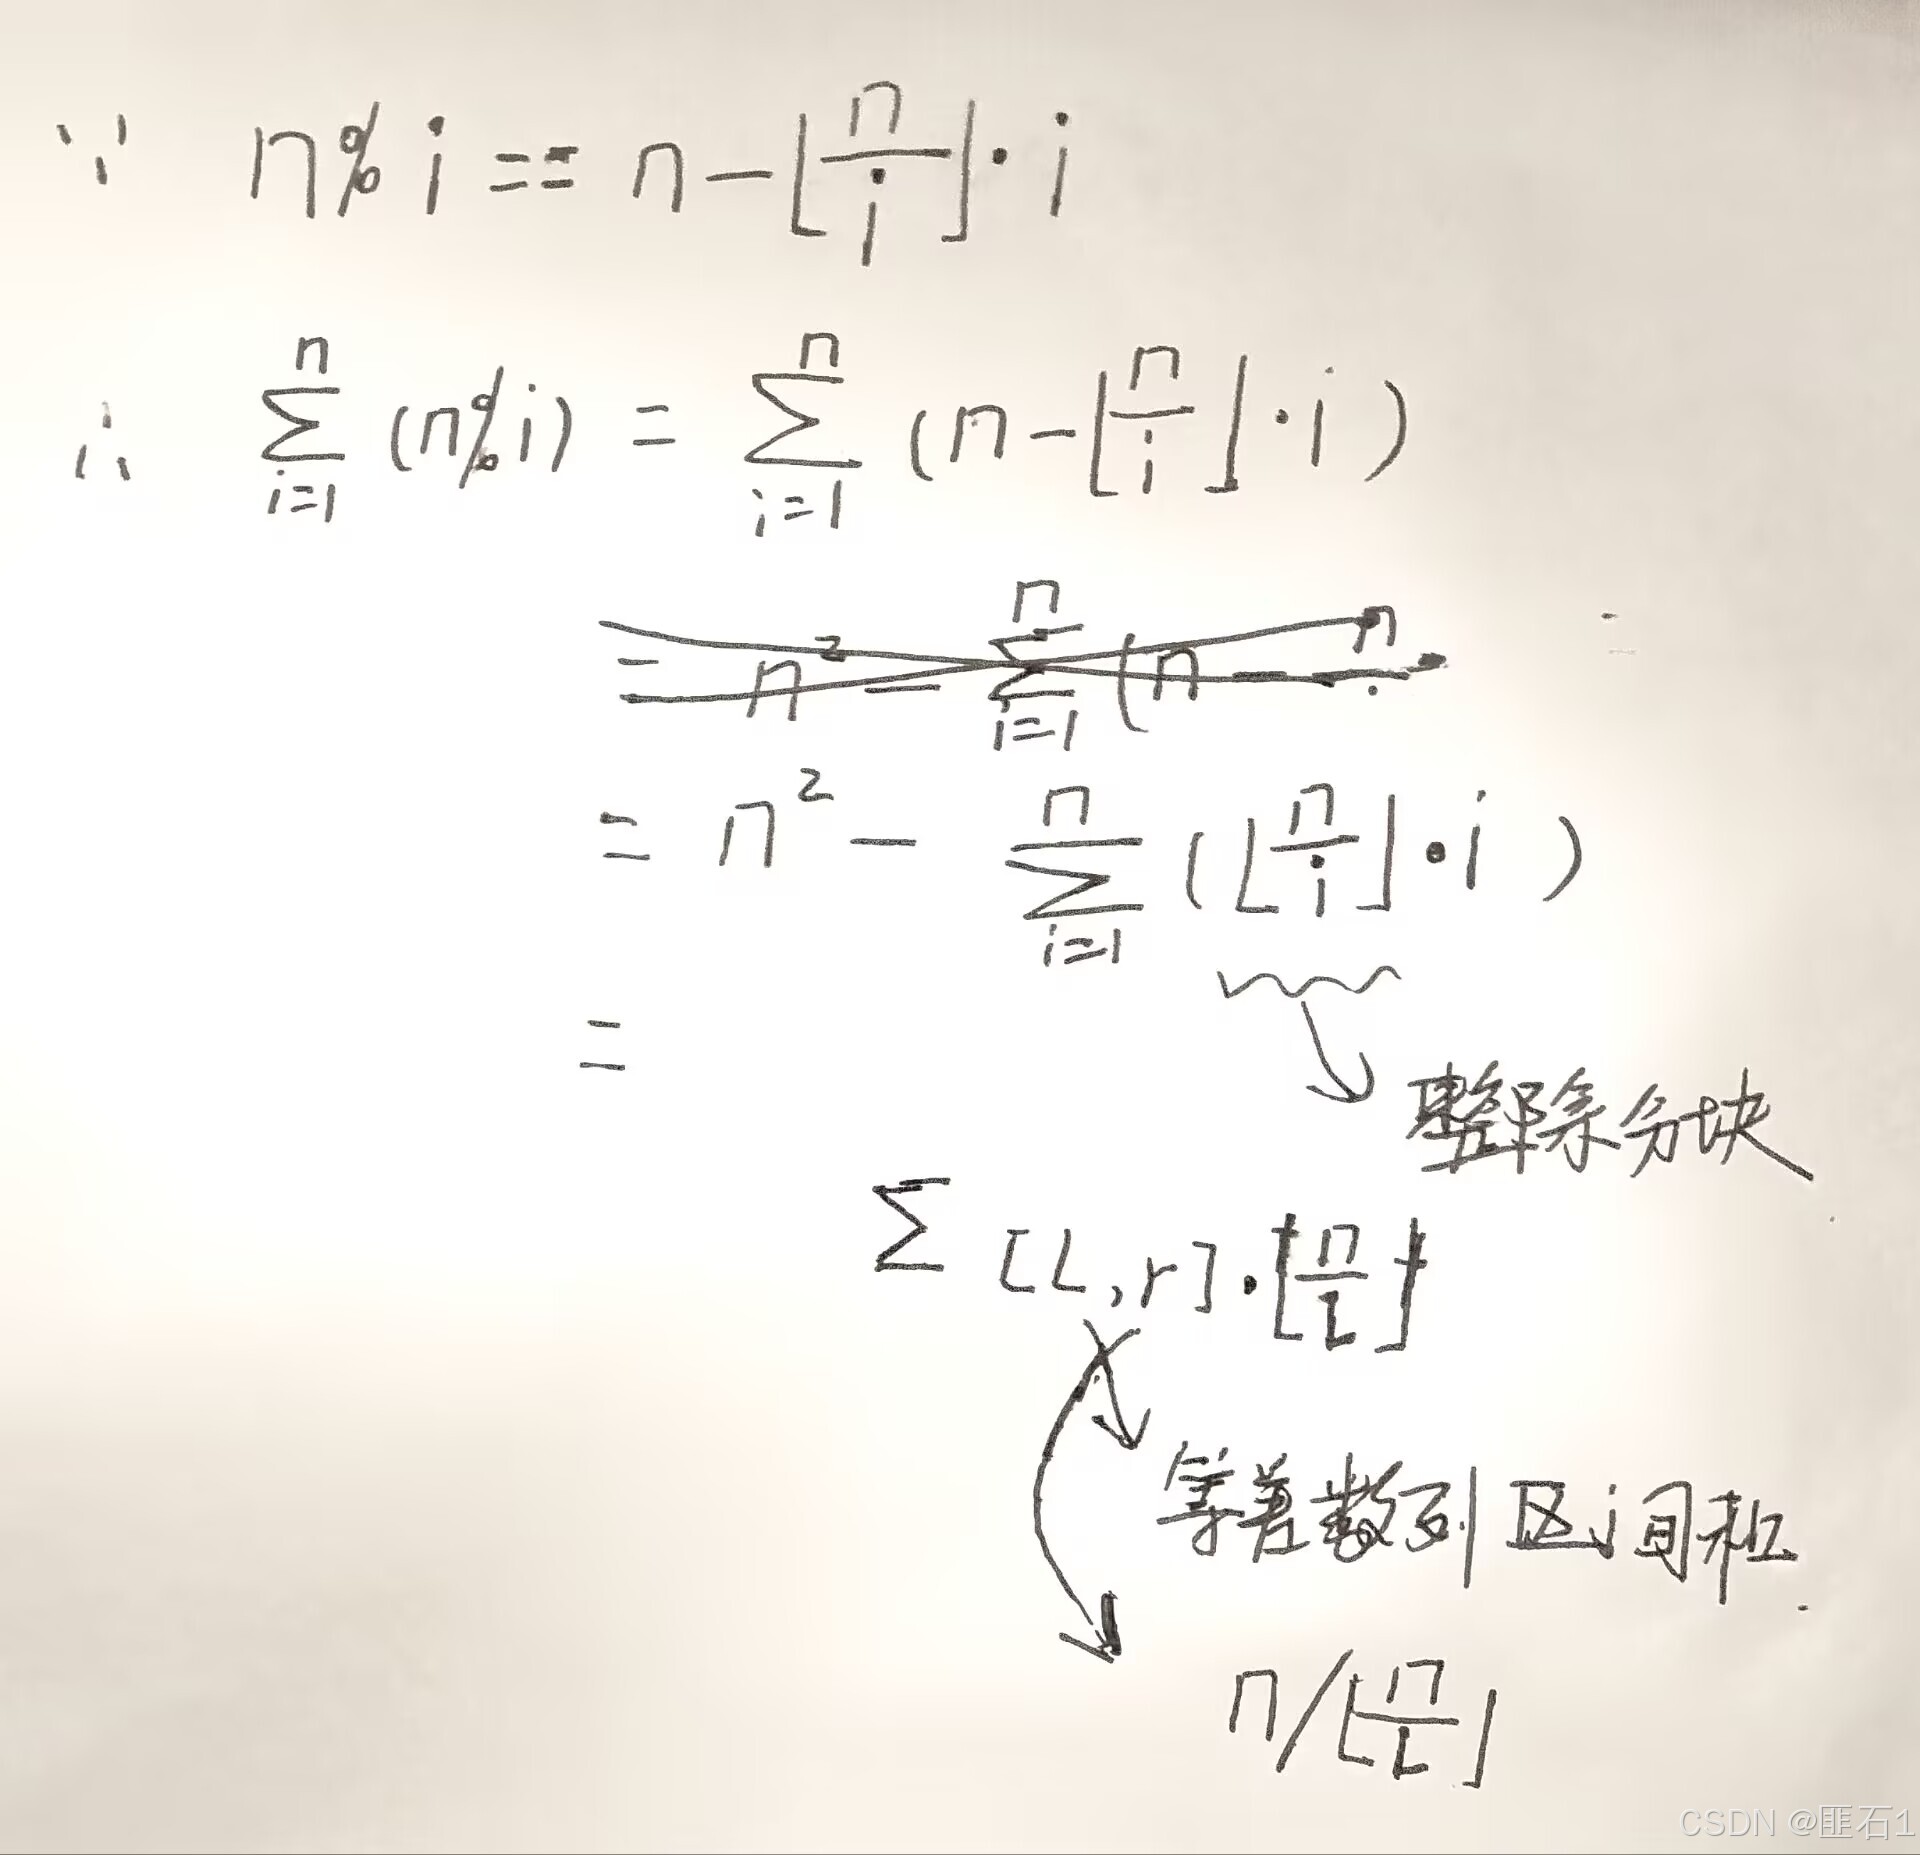 ∵ n%i == n-⌊n/i⌋·i
∴ ∑_{i=1}^{n} (n%i) = ∑_{i=1}^{n} (n-⌊n/i⌋·i)
= n² - ∑_{i=1}^{n} (n -
= n² - ∑_{i=1}^{n} (⌊n/i⌋·i)
=
整除分块
∑ [L,r]·⌊n/L⌋
等差数列区间和.
n/⌊n/L⌋
CSDN @匪石1